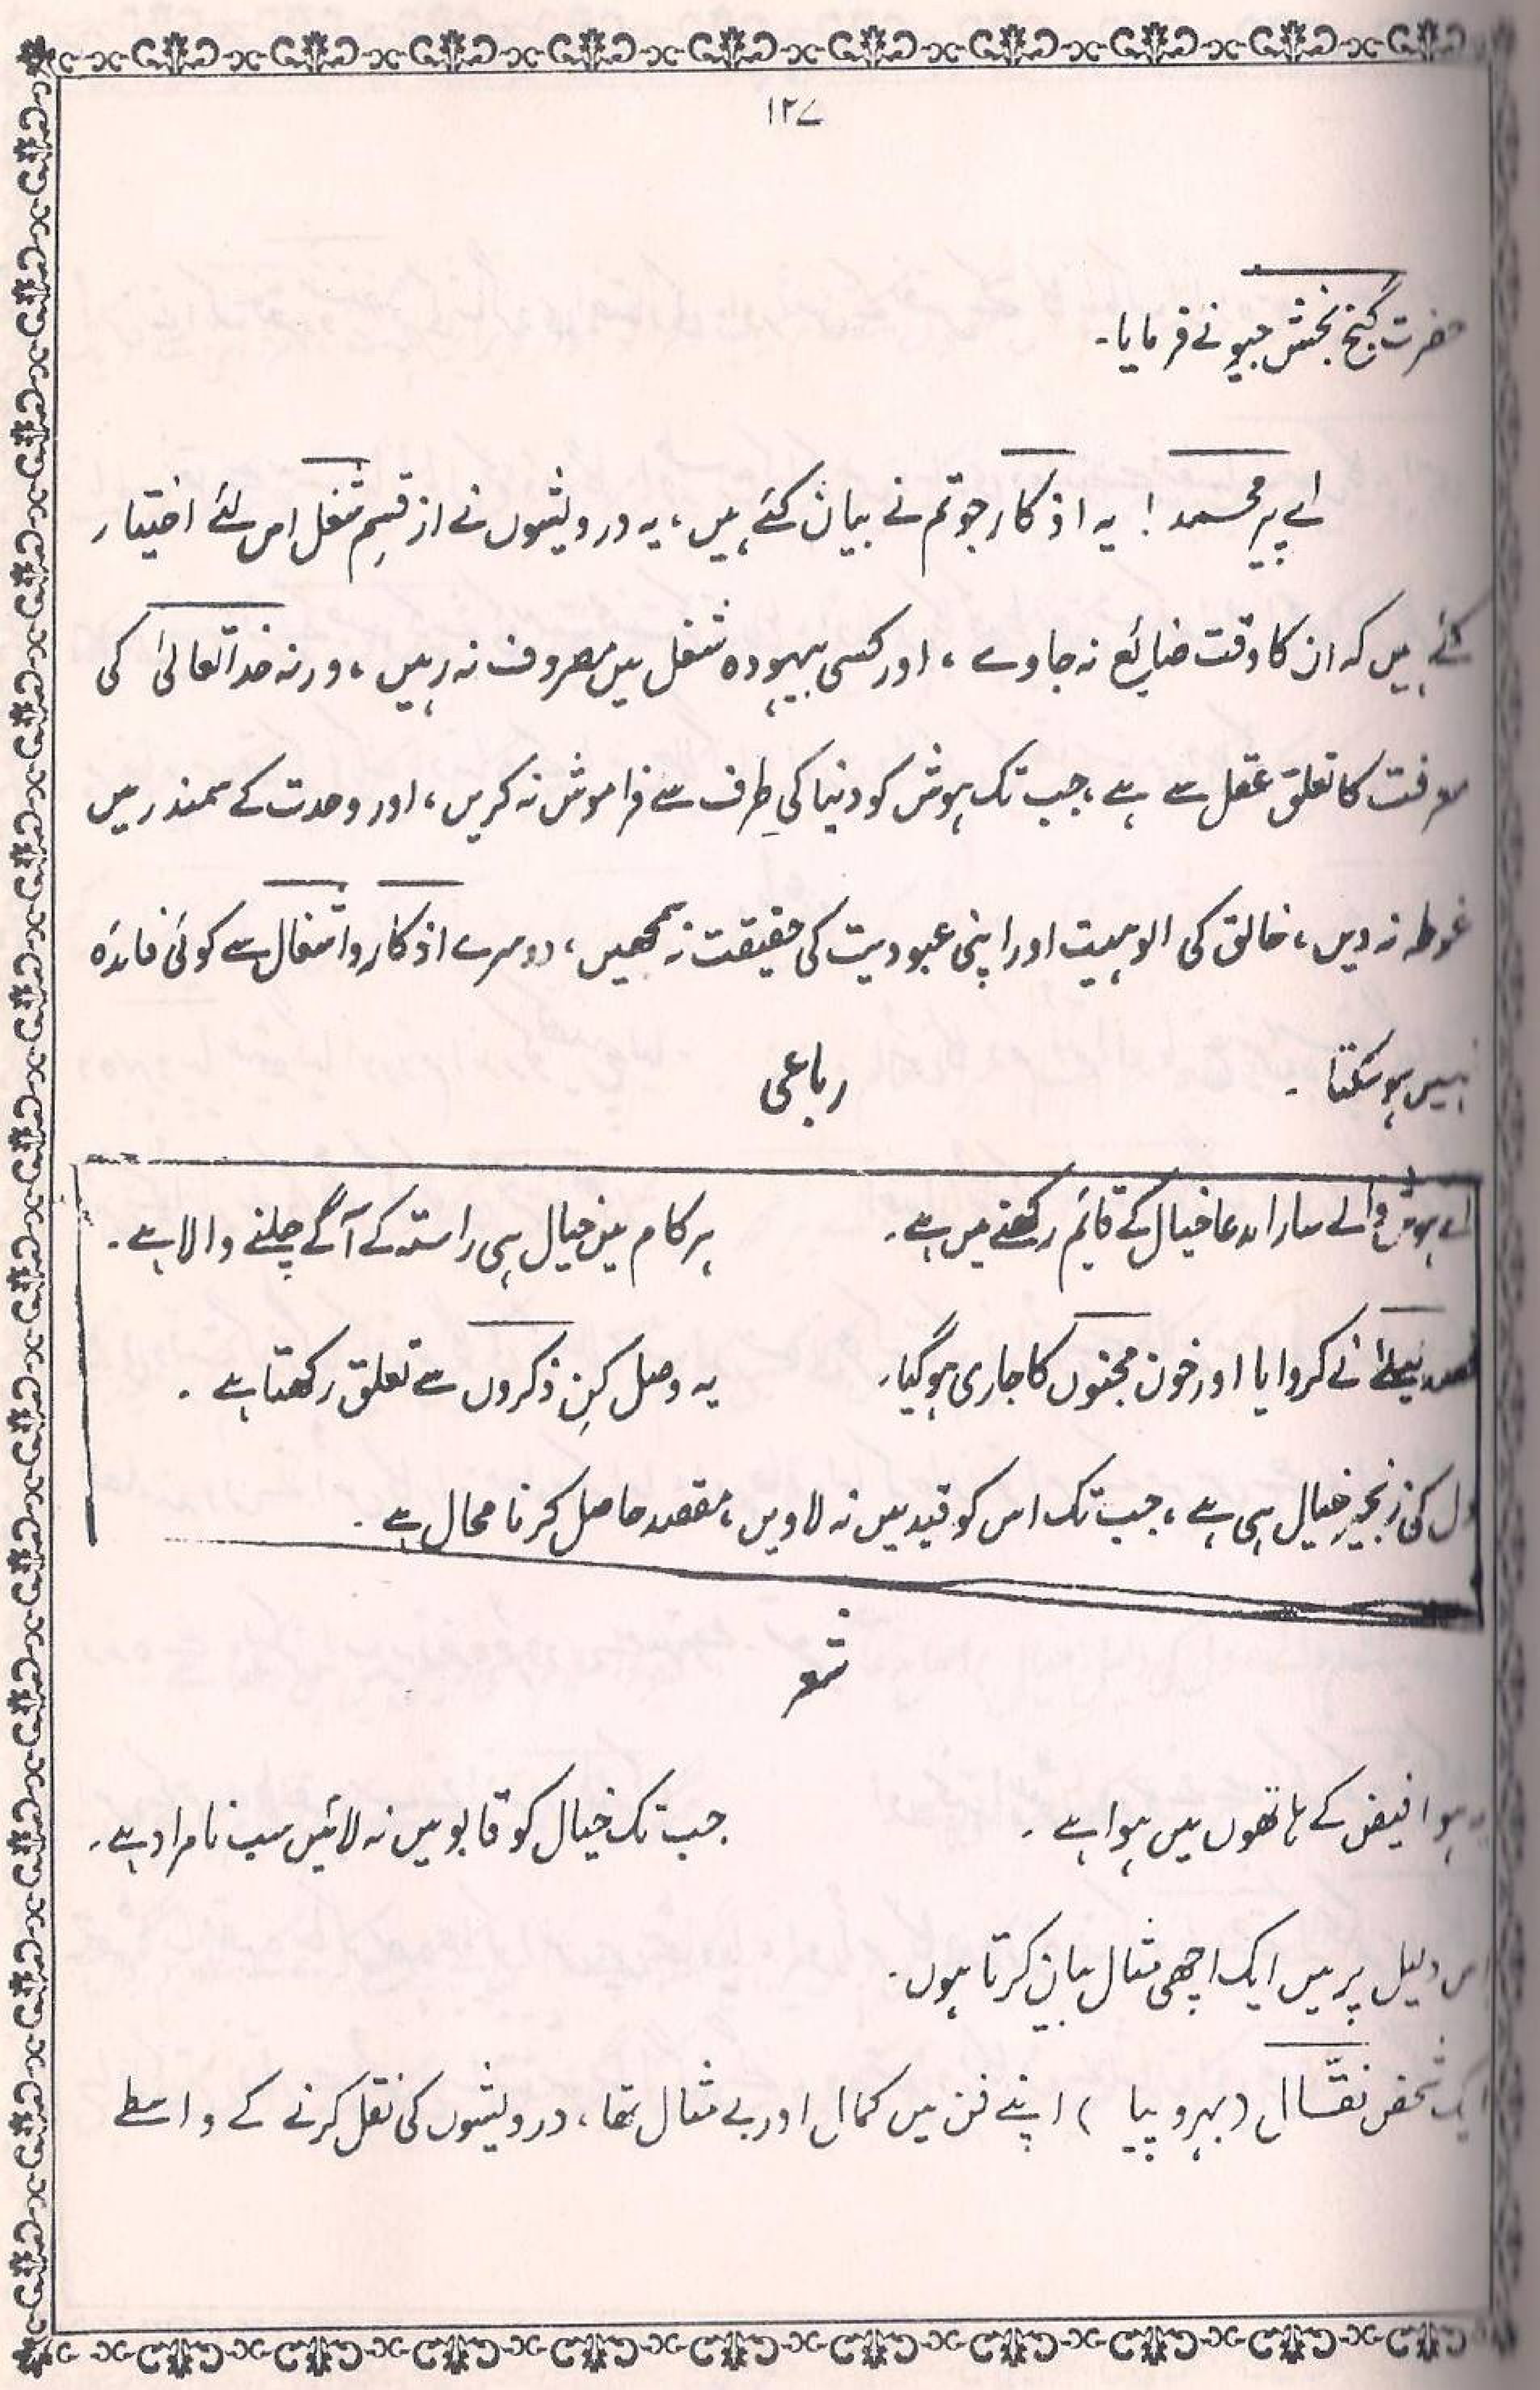 ۱۲۷
حضرت گنج بخش جیو نے فرمایا۔
اے پیر محمد ! یہ اذکار جو تم نے بیان کئے ہیں، یہ درویشوں نے از قسِم شغل اس لئے اختیار
کئے ہیں کہ ان کا وقت ضائع نہ جاوے ، اور کسی بیہودہ شغل میں مصروف نہ رہیں ، ورنہ خدا تعالیٰ کی
معرفت کا تعلق عقل سے ہے ، جب تک ہوش کو دنیا کی طرف سے فراموش نہ کریں ، اور وحدت کے سمندر میں
غوطہ نہ دیں ، خالق کی الوہیت اور اپنی عبودیت کی حقیقت نہ سمجھیں ، دوسرے اذکار و اشغال سے کوئی فائدہ
نہیں ہو سکتا ۔ رباعی
اے ہوش والے سارا مدعا خیال کے قائم رکھنے میں ہے۔ ہر کام میں خیال ہی راستہ کے آگے چلنے والا ہے ۔
فصد لیلےٰ نے کروایا اور خون مجنوں کا جاری ہو گیا۔ یہ وصل کِن ذکروں سے تعلق رکھتا ہے ۔
دل کی زنجیر خیال ہی ہے ، جب تک اس کو قید میں نہ لاویں ، مقصد حاصل کرنا محال ہے ۔
شعر
ہوا فیض کے ہاتھوں میں ہوا ہے ۔ جب تک خیال کو قابو میں نہ لائیں سب نامراد ہے ۔
اس دلیل پر میں ایک اچھی مثال بیان کرتا ہوں۔
ایک شخص نقّال (بہروپیا ) اپنے فن میں کمال اور بے مثال تھا ، درویشوں کی نقل کرنے کے واسطے